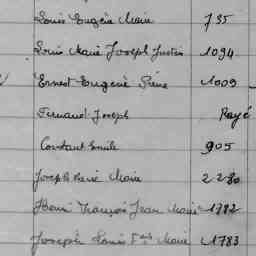 Louis Eugène Marie 735
Louis Marie Joseph Justin 1094
Ernest Eugène Pierre 1009
Fernand Joseph Rayé
Constant Emile 905
Joseph René Marie 2230
Henri François Jean Marie 1782
Joseph Louis Marie 1783